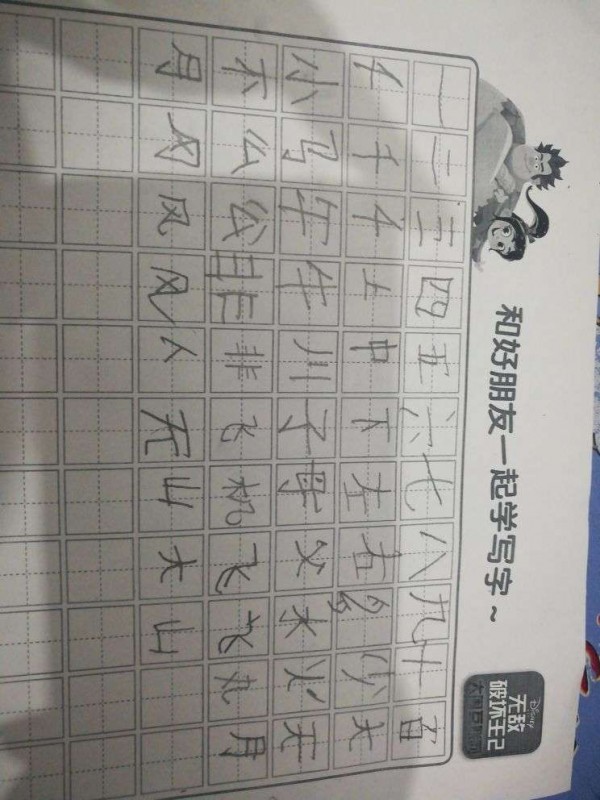 和好朋友一起学写字~
Disney
无敌
破坏王2
一二三四五六七八九十百
千上中下左右多少大
小马午牛川子母父水火天
不么公非飞机飞飞丸月
月风风人无山大山